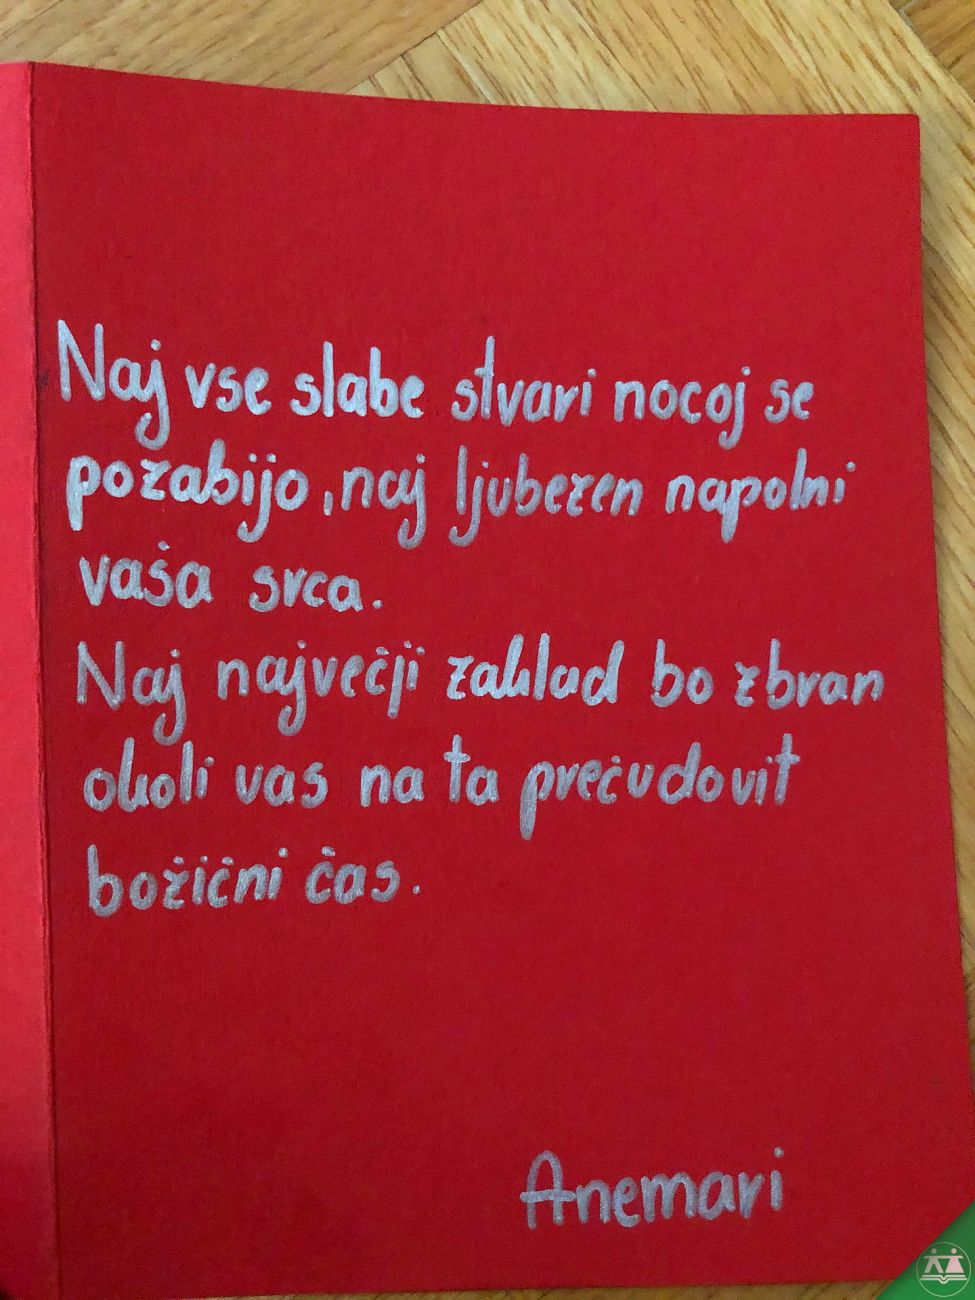 Naj vse slabe stvari nocoj se
pozabijo, naj ljubezen napolni
vaša srca.
Naj največji zaklad bo zbran
okoli vas na ta prečudovit
božični čas.
Anemari